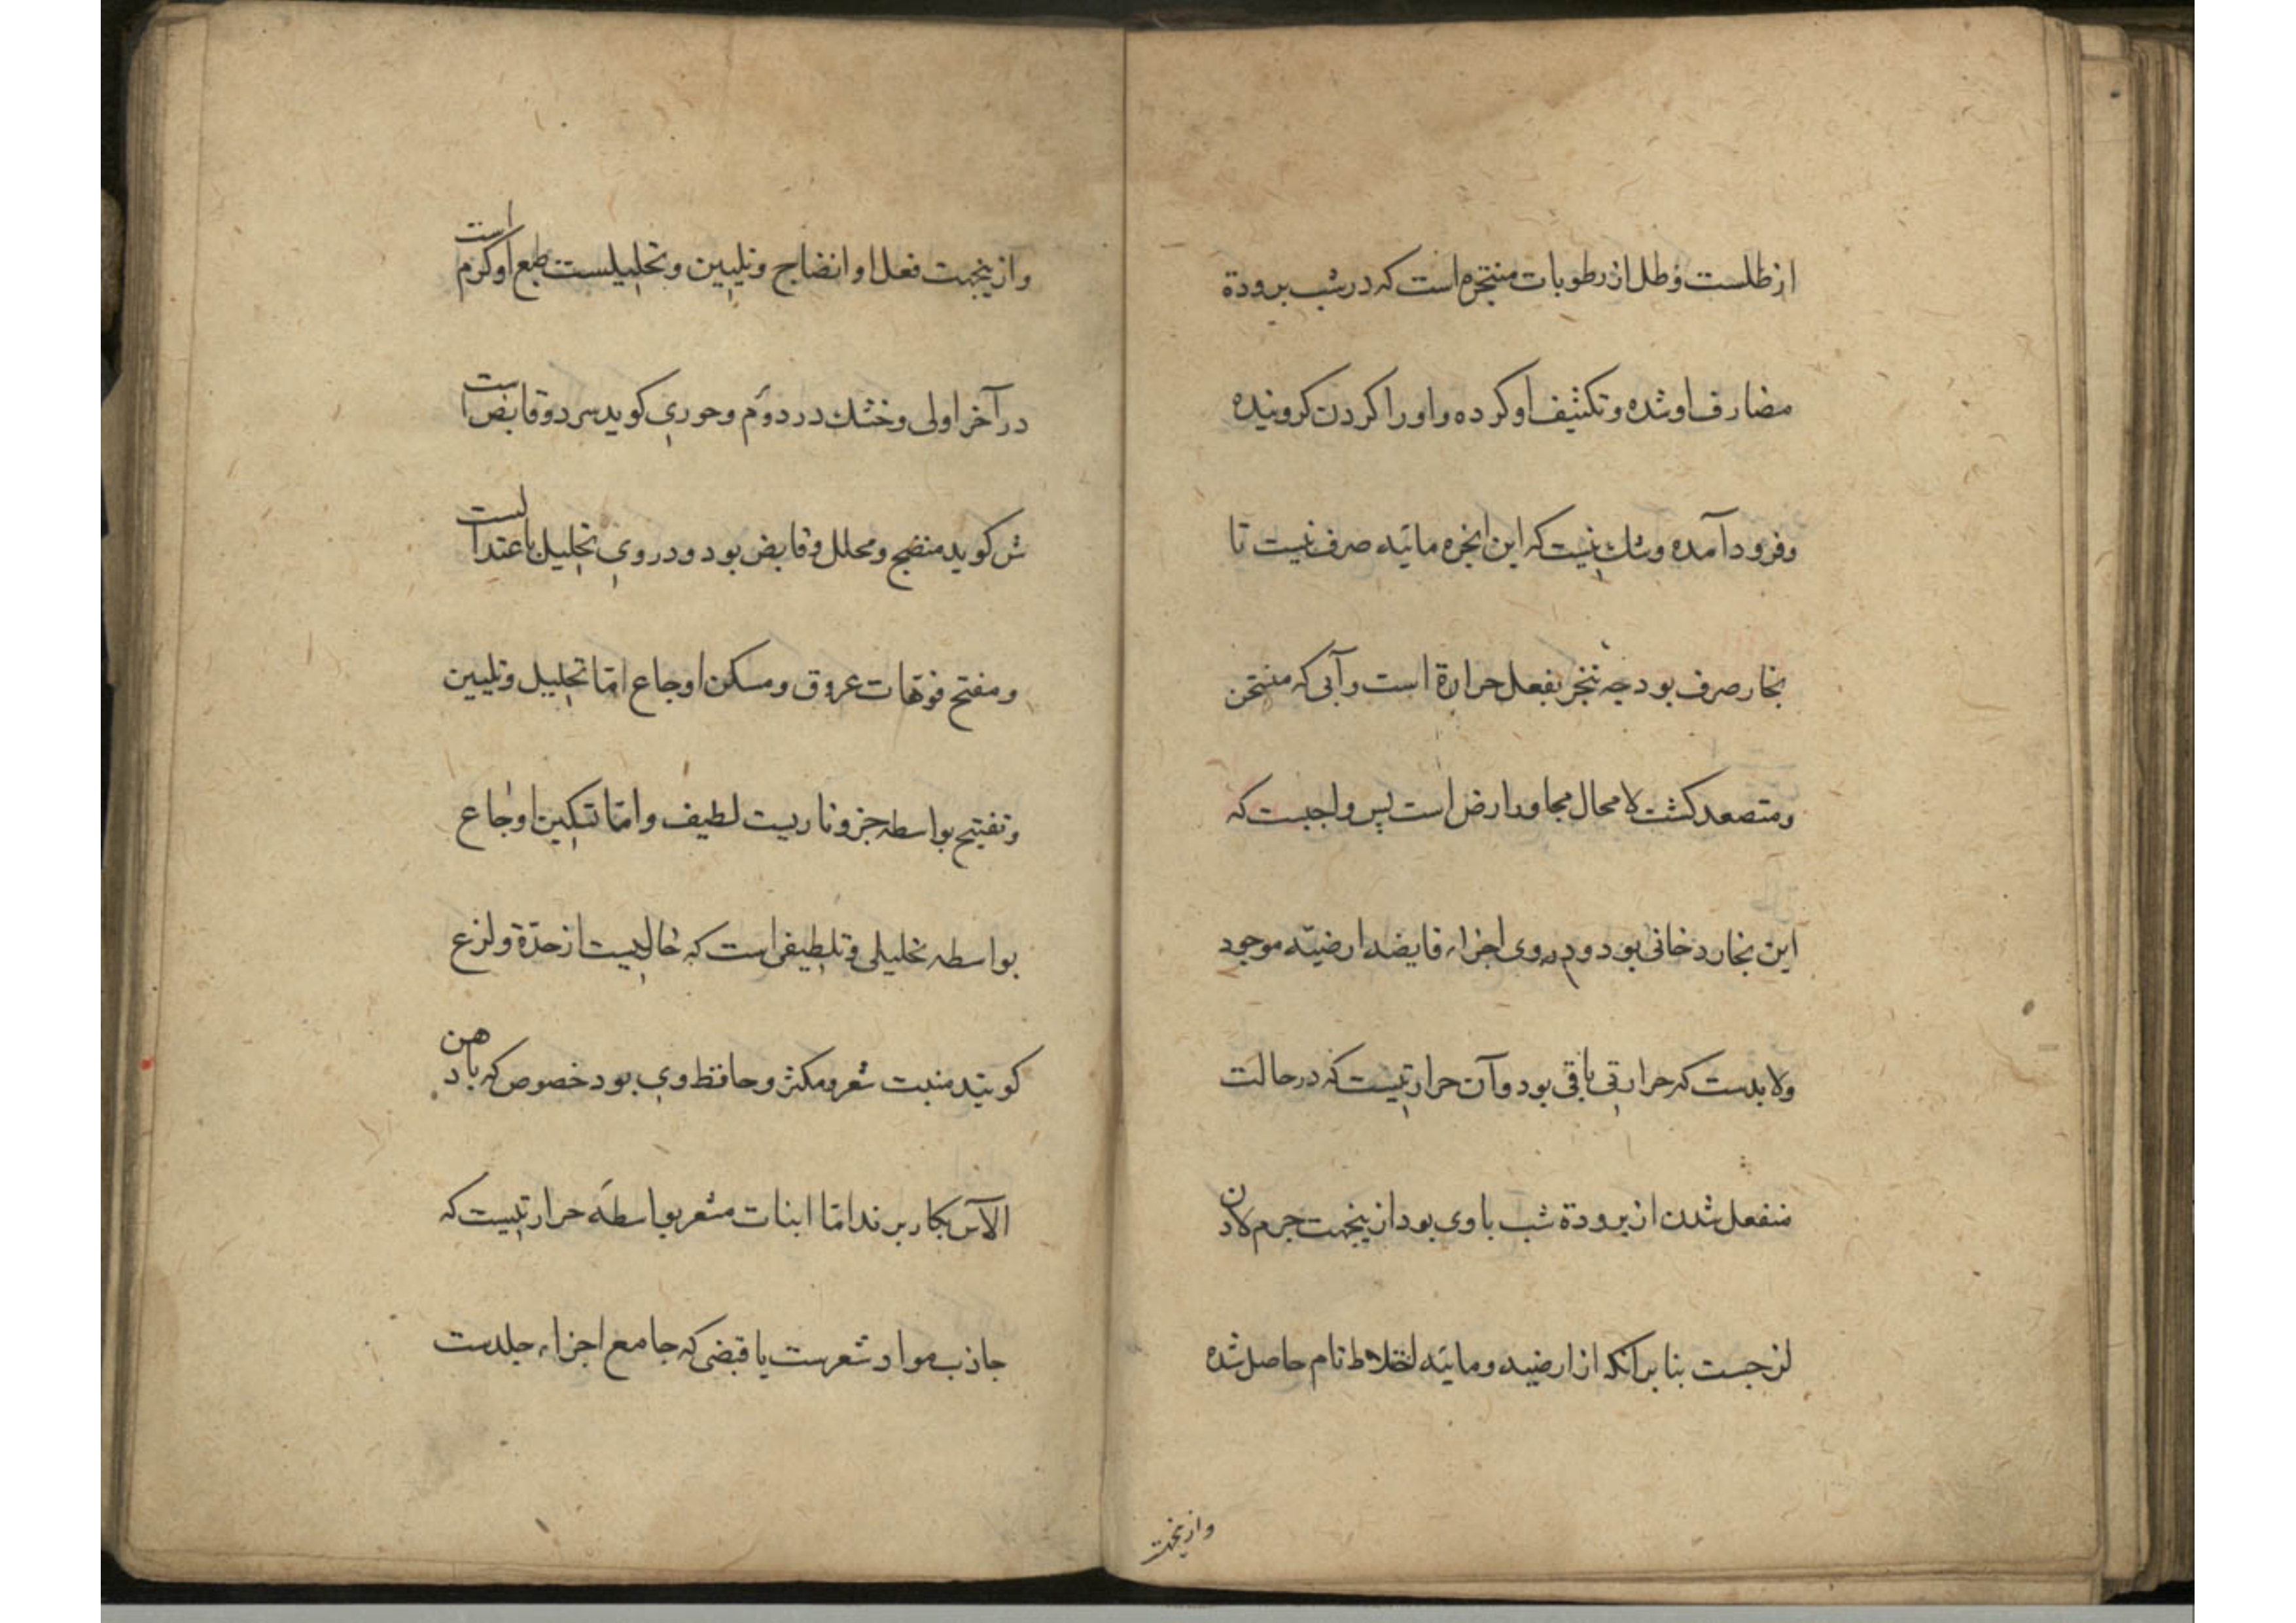 از طلست و طل از رطوبات متبخره است که در شب برودة
مضارف او شده و تکثیف او کرده و او را کردن کرونیده
و فرود آمده و شك نیست که این ابخره مائیه صرف نیست تا
بخار صرف بود چه تبخر بفعل حرارة است و آبی که متسخن
و متصعد کشت لا محال مجاور ارض است پس واجبست که
این بخار دخانی بود و در وی اجزاء قابضه ارضیّه موجود
ولا بدست که حرارتی باقی بود و آن حرارتیست که در حالت
منفعل شدن از برودة شب با وی بود ازینجهت جرم لادن
لزجست بنا برانکه از ارضیه و مائیه اختلاط تام حاصل شده
وازینجهت
وازینجهت فعل او انضاج و تلیین و تحلیلست طبع او کرم است
در آخر اولی و خشك در دوّم و حوری کوید سرد و قابض است
ش کوید منضج و محلل و قابض بود و در وی تحلیل باعتدالست
و مفتح فوهات عروق و مسکن اوجاع امّا تحلیل و تلیین
و تفتیح بواسطه جزو ناریت لطیف و امّا تسکین اوجاع
بواسطه تحلیلی و تلطیفی است که خالیست از حدّة و لزع
کویند منبت شعر و مکثر و حافظ وی بود خصوص که با دهن
الآس بکار برند امّا انبات شعر بواسطه حرارتیست که
جاذب مواد شعرست با قبضی که جامع اجزاء جلدست